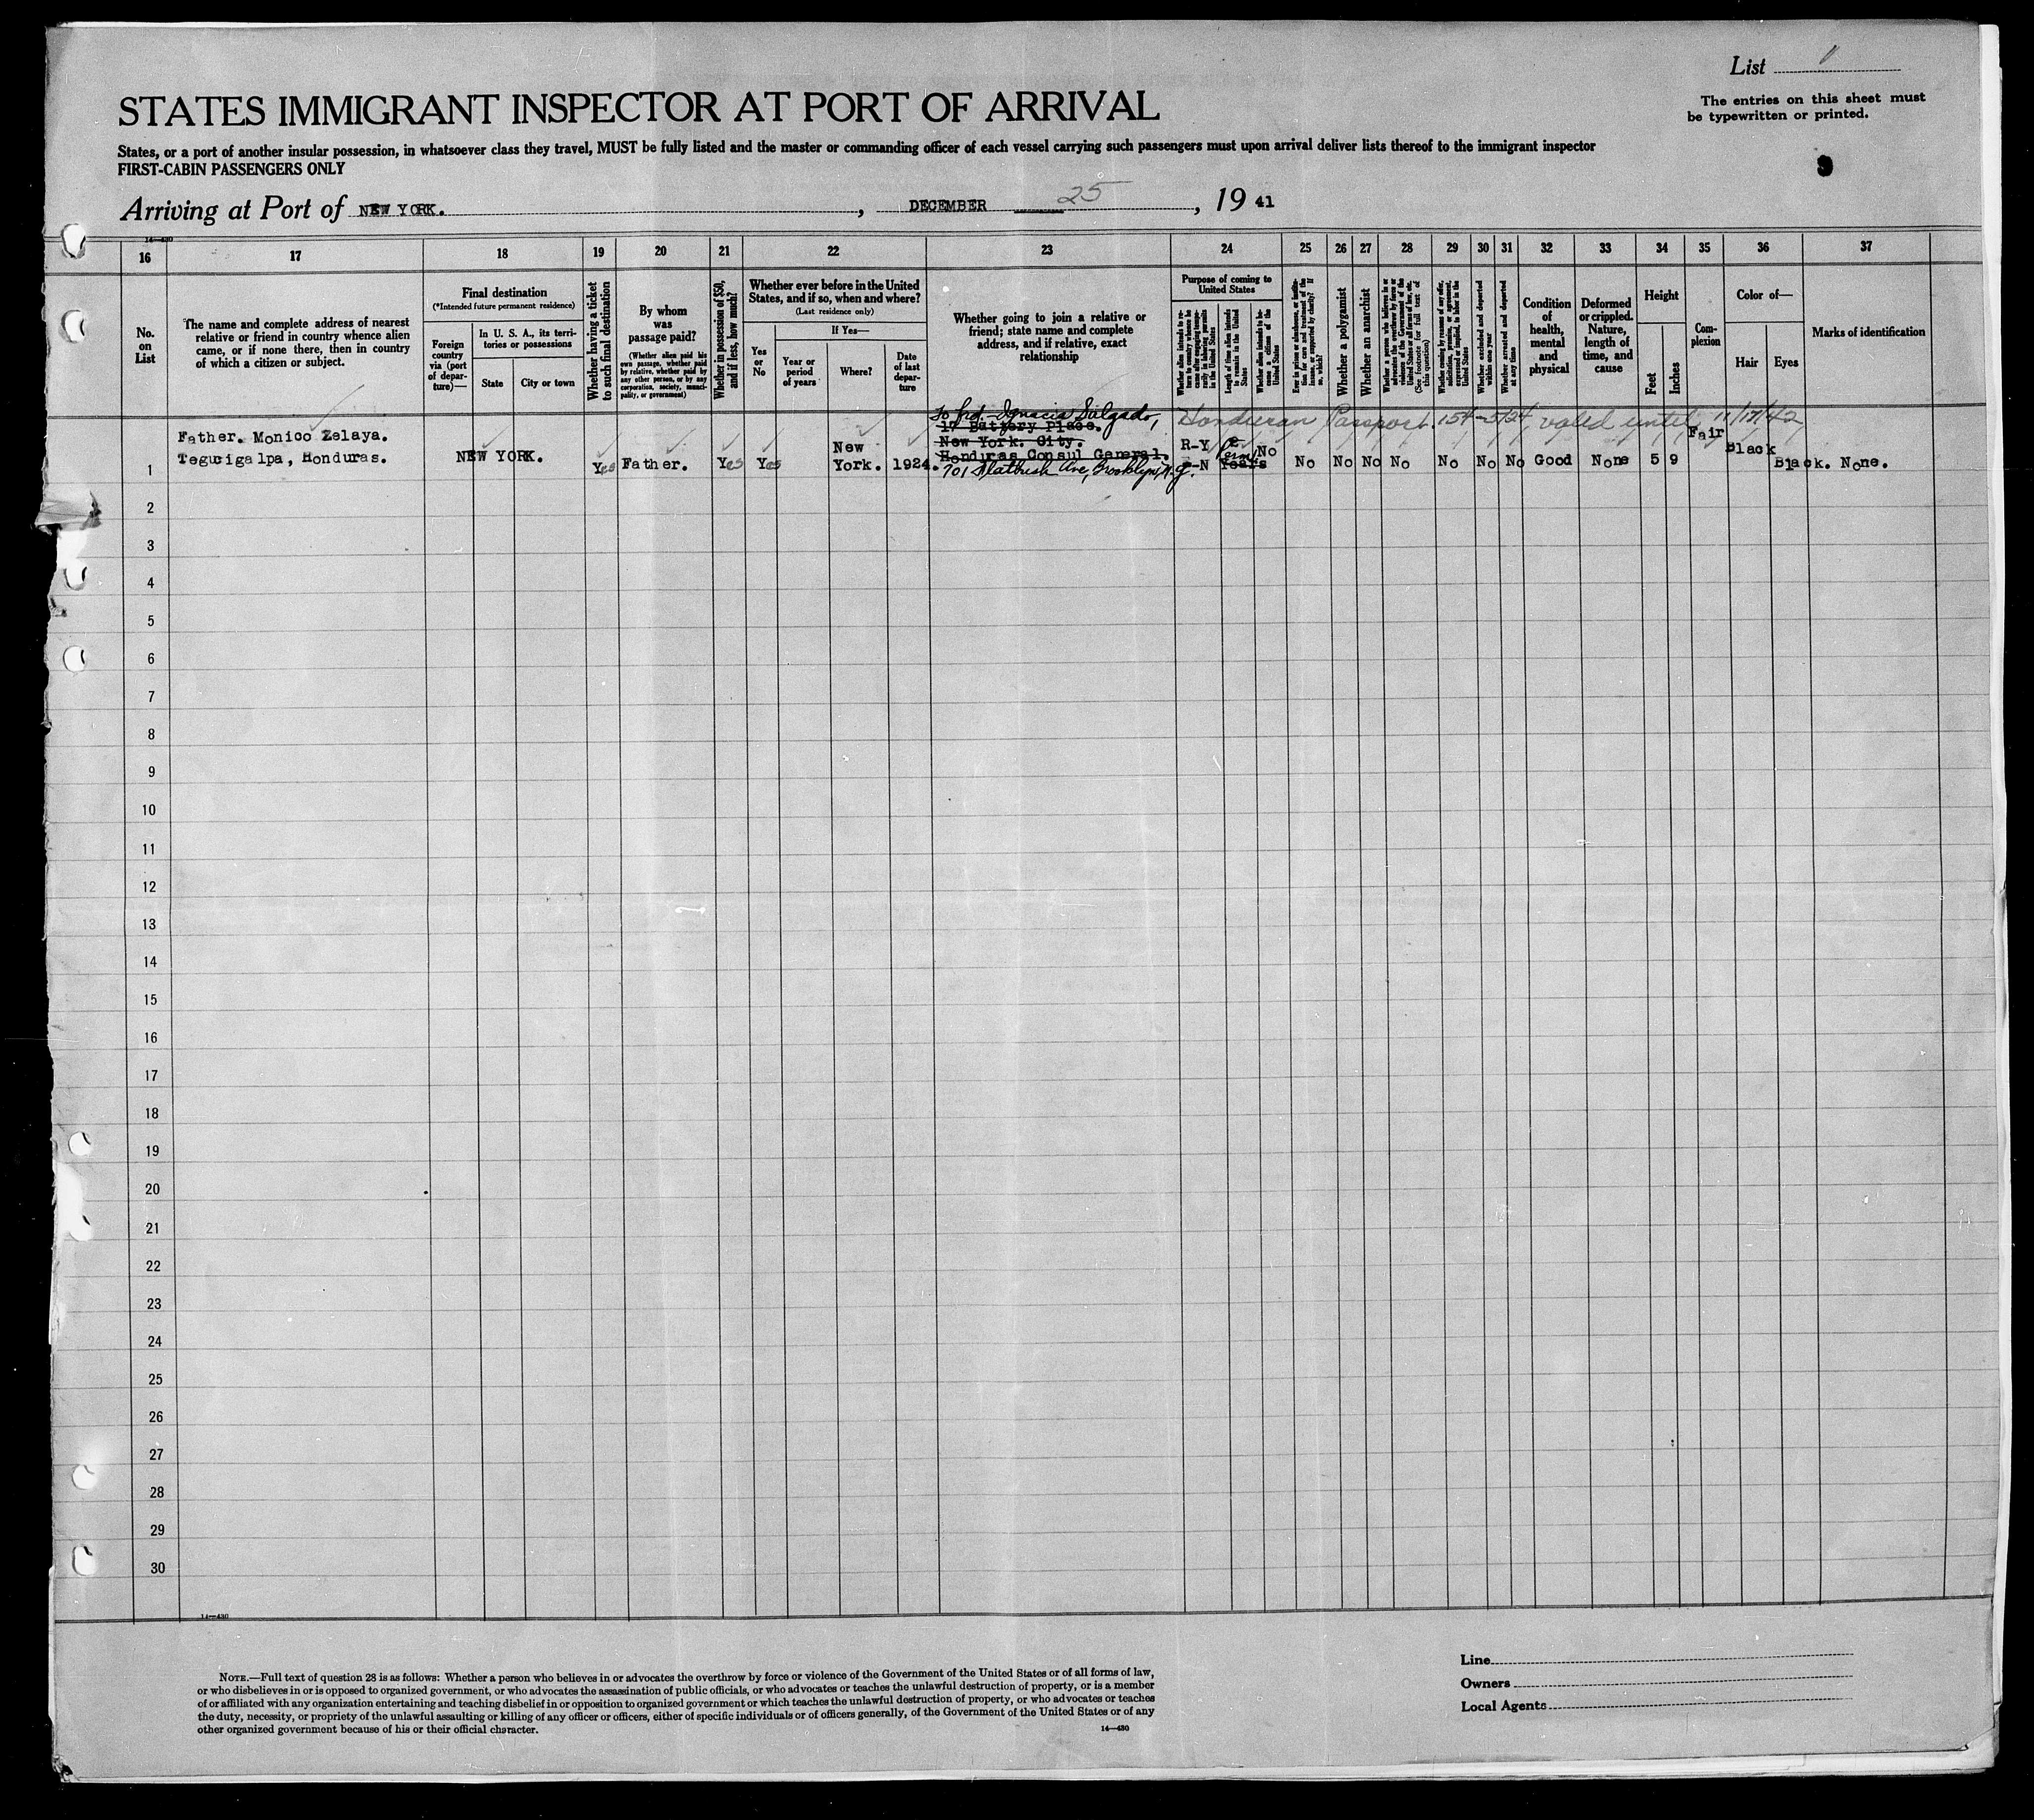 List
STATES IMMIGRANT INSPECTOR AT PORT OF ARRIVAL
The entries on this sheet must
be typewritten or printed.
States, or a port of another insular possession, in whatsoever class they travel, MUST be fully listed and the master or commanding officer of each vessel carrying such passengers must upon arrival deliver lists thereof to the immigrant inspector
FIRST-CABIN PASSENGERS ONLY
9
Arriving at Port of NEW YORK. , DECEMBER 25 , 19 41
14—430
16 17 18 19 20 21 22 23 24 25 26 27 28 29 30 31 32 33 34 35 36 37
No.
on
List
The name and complete address of nearest
relative or friend in country whence alien
came, or if none there, then in country
of which a citizen or subject.
Final destination
(*Intended future permanent residence)
Foreign
country
via (port
of depar-
ture)—
In U. S. A., its terri-
tories or possessions
State
City or town
Whether having a ticket
to such final destination
By whom
was
passage paid?
(Whether alien paid his
own passage, whether paid
by relative, whether paid by
any other person, or by any
corporation, society, munici-
pality, or government)
Whether in possession of $50,
and if less, how much?
Whether ever before in the United
States, and if so, when and where?
(Last residence only)
Yes
or
No
If Yes—
Year or
period
of years
Where?
Date
of last
depar-
ture
Whether going to join a relative or
friend; state name and complete
address, and if relative, exact
relationship
Purpose of coming to
United States
Whether alien intends to re-
turn to country whence he
came after engaging tempo-
rarily in laboring pursuits
in the United States
Length of time alien intends
to remain in the United
States
Whether alien intends to be-
come a citizen of the
United States
Ever in prison or almshouse, or institu-
tion for care and treatment of the
insane, or supported by charity? If
so, which?
Whether a polygamist
Whether an anarchist
Whether a person who believes in or
advocates the overthrow by force or
violence of the Government of the
United States or all forms of law, etc.
(See footnote for full text of
this question)
Whether coming by reason of any offer,
solicitation, promise, or agreement,
expressed or implied, to labor in the
United States
Whether excluded and deported
within one year
Whether arrested and deported
at any time
Condition
of
health,
mental
and
physical
Deformed
or crippled.
Nature,
length of
time, and
cause
Height
Feet
Inches
Com-
plexion
Color of—
Hair
Eyes
Marks of identification
To frd. Ignacio Salgado,
Honduran Passport. 154-5/24, valid until 11/17/42
17 Battery Place.
New York. City.
Honduras Consul General.
701 Flatbush Ave, Brooklyn, N.Y.
1
Father. Monico Zelaya.
Tegucigalpa, Honduras.
NEW YORK.
Yes
Father.
Yes
Yes
New
York.
1924.
R-Y
P-N
2
Perm
Years
No
No
No
No
No
No
No
No
Good
None
5
9
Fair
Black
Black.
None.
2
3
4
5
6
7
8
9
10
11
12
13
14
15
16
17
18
19
20
21
22
23
24
25
26
27
28
29
30
14—430
NOTE.—Full text of question 28 is as follows: Whether a person who believes in or advocates the overthrow by force or violence of the Government of the United States or of all forms of law,
or who disbelieves in or is opposed to organized government, or who advocates the assassination of public officials, or who advocates or teaches the unlawful destruction of property, or is a member
of or affiliated with any organization entertaining and teaching disbelief in or opposition to organized government or which teaches the unlawful destruction of property, or who advocates or teaches
the duty, necessity, or propriety of the unlawful assaulting or killing of any officer or officers, either of specific individuals or of officers generally, of the Government of the United States or of any
other organized government because of his or their official character.
14—430
Line
Owners
Local Agents